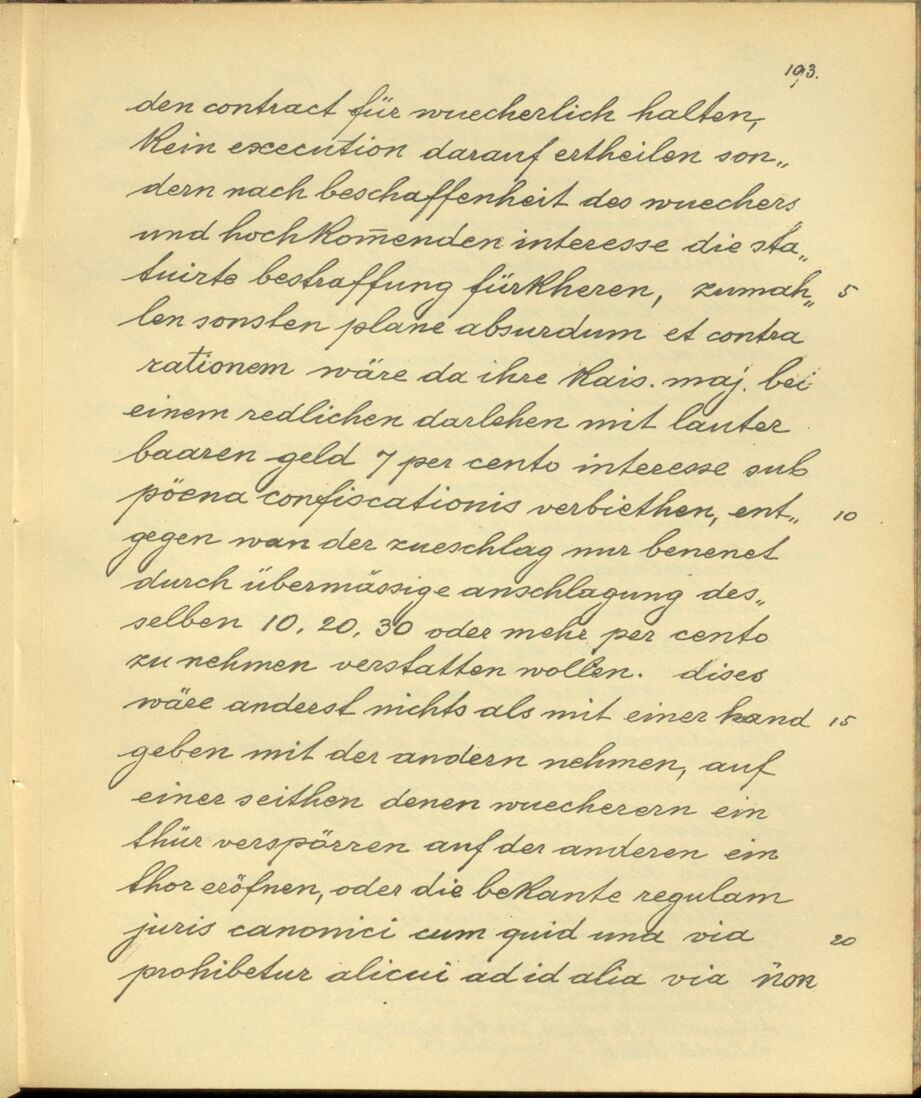 193.
den contract für wuecherlich halten,
kein execution darauf ertheilen son„
dern nach beschaffenheit des wuechers
und hochkom̄enden interesse die sta„
tuirte bestraffung fürkheren, zumah„ 5
len sonsten plane absurdum et contra
rationem wäre da ihre kais. maj. bei
einem redlichen darlehen mit lauter
baaren geld 7 per cento interesse sub
pöena confiscationis verbiethen, ent„ 10
gegen wan der zueschlag nur benenet
durch übermässige anschlagung des„
selben 10, 20, 30 oder mehr per cento
zu nehmen verstatten wollen. dises
wäre anderst nichts als mit einer hand 15
geben mit der andern nehmen, auf
einer seithen denen wuecherern ein
thür verspörren auf der anderen ein
thor eröfnen, oder die bekante regulam
juris canonici cum quid una via 20
prohibetur alicui ad id alia via non